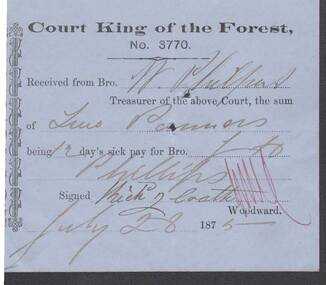 Court King of the Forest,
No. 3770.
Received from Bro. W. Phillips
Treasurer of the above Court, the sum
of Two Pounds
being 12 day's sick pay for Bro.
Phillips
Signed Rich
Woodward.
July 28 1875